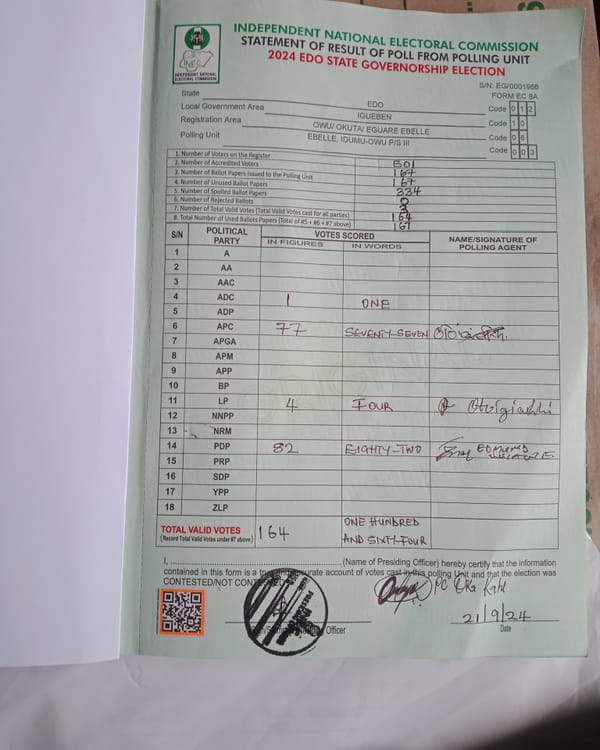 INDEPENDENT NATIONAL ELECTORAL COMMISSION
STATEMENT OF RESULT OF POLL FROM POLLING UNIT
2024 EDO STATE GOVERNORSHIP ELECTION
INEC
INDEPENDENT NATIONAL
ELECTORAL COMMISSION
S/N: EG/0001966
FORM EC 8A
State EDO Code 012
Local Government Area IGUEBEN Code 10
Registration Area OWU/ OKUTA/ EGUARE EBELLE Code 06
Polling Unit EBELLE, IDUMU-OWU P/S III Code 003
1. Number of Voters on the Register 501
2. Number of Accredited Voters 167
3. Number of Ballot Papers Issued to the Polling Unit 167
4. Number of Unused Ballot Papers 334
5. Number of Spoiled Ballot Papers 0
6. Number of Rejected Ballots 3
7. Number of Total Valid Votes (Total Valid Votes cast for all parties) 164
8. Total Number of Used Ballots Papers (Total of #5 + #6 + #7 above) 167
S/N POLITICAL PARTY VOTES SCORED NAME/SIGNATURE OF POLLING AGENT
IN FIGURES IN WORDS
1 A
2 AA
3 AAC
4 ADC 1 ONE
5 ADP
6 APC 77 SEVENTY-SEVEN
7 APGA
8 APM
9 APP
10 BP
11 LP 4 FOUR
12 NNPP
13 NRM
14 PDP 82 EIGHTY-TWO EDMUND
15 PRP
16 SDP
17 YPP
18 ZLP
TOTAL VALID VOTES 164 ONE HUNDRED AND SIXTY-FOUR
(Record Total Valid Votes under #7 above)
I, (Name of Presiding Officer) hereby certify that the information
contained in this form is a true and accurate account of votes cast in this polling Unit and that the election was
CONTESTED/NOT CONTESTED
PO
21/9/24
Officer
Date